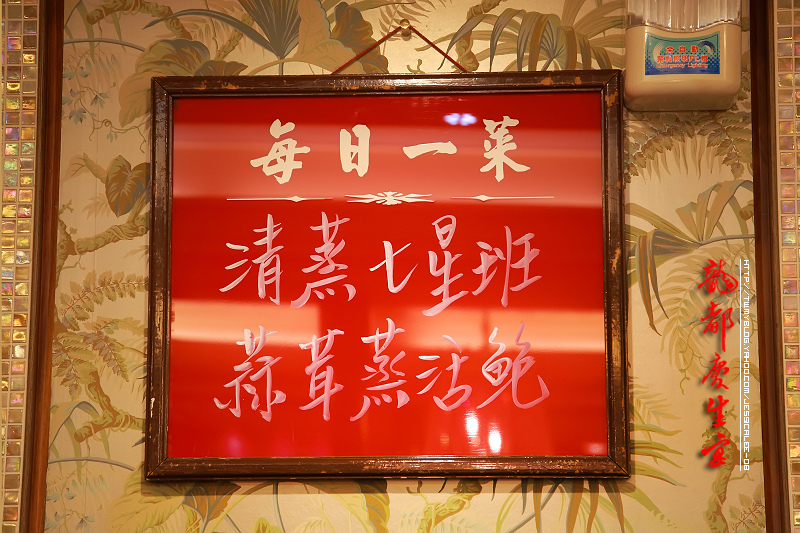 每日一菜
清蒸七星班
蒜茸蒸活鲍
Emergency Lighting
龍都慶生宴
HTTP://TW.MYBLOG.YAHOO.COM/JESSCALEE-DS